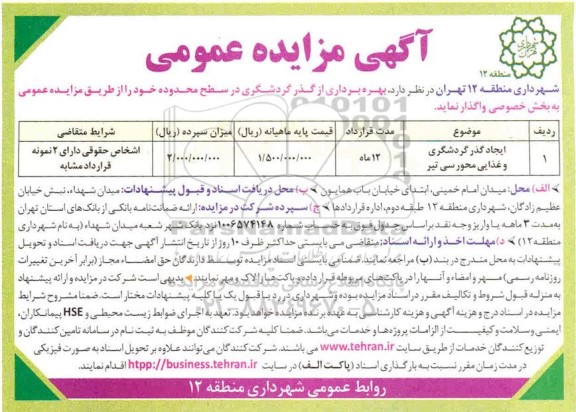 آگهی مزایده عمومی
منطقه ۱۲
شهرداری منطقه ۱۲ تهران در نظر دارد، بهره برداری از گذر گردشگری در سطح محدوده خود را از طریق مزایده عمومی
به بخش خصوصی واگذار نماید.
ردیف موضوع مدت قرارداد قیمت پایه ماهیانه (ریال) میزان سپرده (ریال) شرایط متقاضی
۱ ایجاد گذر گردشگری و غذایی محور سی تیر ۱۲ ماه ۱/۵۰۰/۰۰۰/۰۰۰ ۲/۰۰۰/۰۰۰/۰۰۰ اشخاص حقوقی دارای ۲ نمونه قرارداد مشابه
الف) محل: میدان امام خمینی، ابتدای خیابان باب همایون ب) محل دریافت اسناد و قبول پیشنهادات: میدان شهداء، نبش خیابان
عظیم زادگان، شهرداری منطقه ۱۲ طبقه دوم، اداره قراردادها ج) سپرده شرکت در مزایده: ارائه ضمانت‌نامه بانکی از بانک‌های استان تهران
به‌مدت ۳ ماهه یا واریز وجه نقد براساس جدول فوق به حساب سپرده شماره ۱۰۰۶۵۷۴۱۴۸ نزد بانک شهر شعبه میدان شهداء (به نام شهرداری
منطقه ۱۲) د) مهلت اخذ و ارائه اسناد: متقاضی می بایستی حداکثر ظرف ۱۰ روز از تاریخ انتشار آگهی جهت دریافت اسناد و تحویل
پیشنهادات به محل مندرج در بند (ب) مراجعه نمایند. ضمنا می بایستی اسناد توسط دارندگان حق امضاء مجاز (برابر آخرین تغییرات
روزنامه رسمی) مهر و امضاء و آنها را در پاکت‌های مربوطه قرار داده و پاکت‌ها را لاک و مهر نمایند بدیهی است شرکت در مزایده و ارائه پیشنهاد
به منزله قبول شروط و تکالیف مقرر در اسناد مزایده بوده و شهرداری در رد یا قبول یک یا کلیه پیشنهادات مختار است. ضمنا مشروح شرایط
مزایده در اسناد درج و هزینه آگهی و هزینه کارشناسی به عهده برنده مزایده خواهد بود. تعهد به اجرای ضوابط زیست محیطی و HSE پیمانکاران،
ایمنی و سلامت و کیفیت از الزامات پروژه‌ها و خدمات می‌باشد. ضمنا کلیه شرکت‌کنندگان موظف به ثبت نام در سامانه تامین کنندگان و
توزیع کنندگان خدمات از طریق سایت www.tehran.ir می باشند. شرکت‌کنندگان می‌توانند علاوه بر تحویل اسناد به صورت فیزیکی
در مدت زمان مقرر نسبت به بارگذاری اسناد (پاکت الف) در سایت htpp://business.tehran.ir اقدام نمایند.
روابط عمومی شهرداری منطقه ۱۲